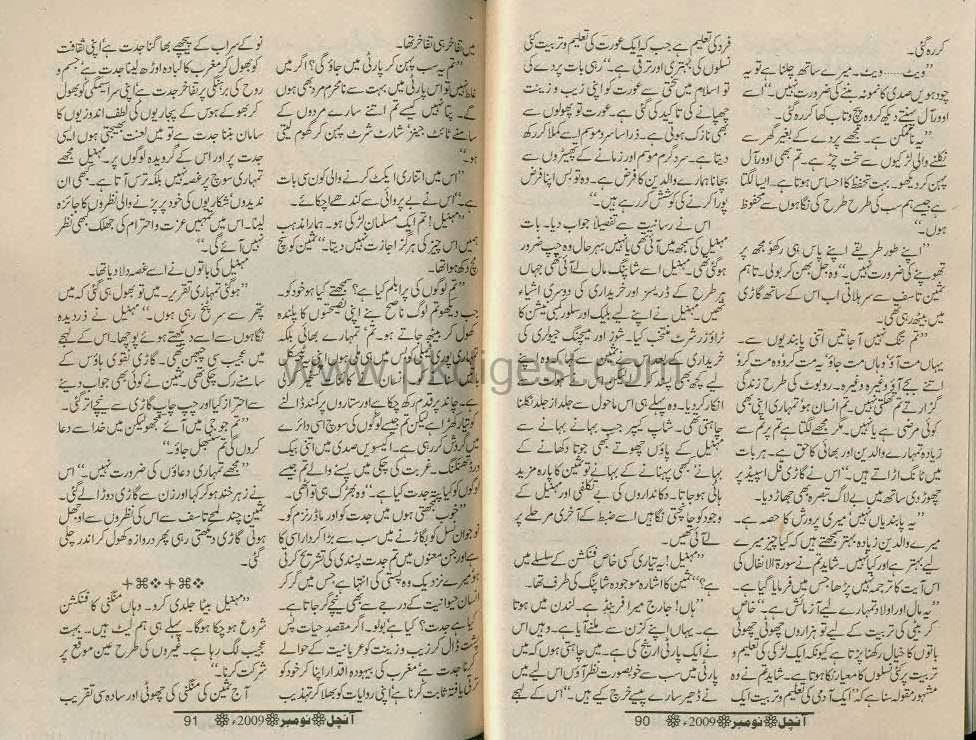 کررہ گئی۔
”ویٹ...... ویٹ۔ میرے ساتھ چلنا ہے تو یہ
چودھویں صدی کا نمونہ بننے کی ضرورت نہیں۔“ اسے
اوورآل پہنتے دیکھ کر وہ پیچ و تاب کھا کر رہ گئی۔
”یہ ناممکن ہے۔ مجھے پردے کے بغیر گھر سے
نکلنے والی لڑکیوں سے سخت چڑ ہے۔ تم بھی اوورآل
پہن کر دیکھو۔ بہت تحفظ کا احساس ہوتا ہے۔ ایسا لگتا
ہے جیسے ہم سب کی طرح طرح کی نگاہوں سے محفوظ
ہوں۔“
”اپنے طور طریقے اپنے پاس ہی رکھو مجھ پر
تھوپنے کی ضرورت نہیں۔“ وہ جل بھن کر بولی۔ تاہم
ثمین تاسف سے سر ہلاتی اب اس کے ساتھ گاڑی
میں بیٹھ رہی تھی۔
”تم تنگ نہیں آ جاتیں اتنی پابندیوں سے۔
یہاں مت آؤ وہاں مت جاؤ یہ مت کرو وہ مت کرو
اتنے بجے آؤ وغیرہ وغیرہ۔ روبوٹ کی طرح زندگی
گزارتے تم تھکتی نہیں۔ تم انسان ہو تمہاری اپنی بھی
کوئی مرضی ہے یا نہیں۔ مگر مجھے لگتا ہے تم پر تم سے
زیادہ تمہارے والدین اور بھائی کا حق ہے۔ ہر بات
میں ٹانگ اڑاتے ہیں۔“ اس نے گاڑی فل اسپیڈ پر
چھوڑ دی ساتھ میں بے لاگ تبصرہ بھی جھاڑ دیا۔
”یہ پابندیاں نہیں میری پرورش کا حصہ ہے۔
میرے والدین زیادہ بہتر سمجھتے ہیں کہ کیا چیز میرے
لیے بہتر ہے اور کیا نہیں۔ شاید تم نے سورۃ الانفال کی
اس آیت کا ترجمہ نہیں پڑھا جس میں فرمایا گیا ہے۔
”یہ مال اور اولاد تمہارے لیے آزمائش ہے۔“ خاص
کر بیٹی کی تربیت کے لیے تو ہزاروں چھوٹی چھوٹی
باتوں کا خیال رکھنا پڑتا ہے کیونکہ ایک لڑکی کی تعلیم و
تربیت پر کئی نسلوں کا معیار زنگا ہوتا ہے۔ شاید تم نے وہ
مشہور مقولہ سنا ہے کہ ”ایک آدمی کی تعلیم و تربیت ایک
فرد کی تعلیم ہے جب کہ ایک عورت کی تعلیم و تربیت کئی
نسلوں کی بہتری اور ترقی ہے۔“ رہی بات پردے کی
تو اسلام میں سختی سے عورت کو اپنی زیب و زینت
چھپانے کی تاکید کی گئی ہے۔ عورت تو پھولوں سے
بھی نازک ہوتی ہے۔ ذرا سا سرد موسم اسے ملا کر رکھ
دیتا ہے۔ سرد گرم موسم اور زمانے کے تھپیڑوں سے
بچانا ہمارے والدین کا فرض ہے۔ وہ تو بس اپنا فرض
پورا کرنے کی کوشش کر رہے ہیں۔“
اس نے رسانیت سے تفصیلاً جواب دیا۔ بات
مہنیل کی سمجھ میں آئی تھی یا نہیں بہرحال وہ چپ ضرور
ہو گئی تھی۔ مہنیل اسے شاپنگ مال لے آئی تھی جہاں
ہر طرح کے ڈریسز اور خریداری کی دوسری اشیاء
تھیں۔ مہنیل نے اپنے لیے بلیک اور سلور کمبی نیشن کا
ٹراؤزر شرٹ منتخب کیا۔ شوز اور میچنگ جیولری کی
خریداری
لیے کچھ بھی پسند کر
انکار کر دیا۔ وہ پہلے ہی اس ماحول سے جلد از جلد نکلنا
چاہتی تھی۔ شاپ کیپر جب بہانے بہانے سے
مہنیل کے پاؤں چھوتے بھی جوتا دکھانے کے
بہانے بھی پہنانے کے بہانے تو ثمین کا پارہ مزید
ہائی ہو جاتا۔ دکانداروں کی بے تکلفی اور مہنیل کے
وجود کو جانچتی نگاہیں اسے ضبط کے آخری مرحلے پر
لے آئی تھیں۔
”مہنیل! یہ تیاری کسی خاص فنکشن کے سلسلے میں
ہے؟“ ثمین کا اشارہ موجودہ شاپنگ کی طرف تھا۔
”ہاں! جارج میرا فرینڈ ہے۔ لندن میں ہوتا
ہے۔ یہاں اپنے کزن سے ملنے آیا ہے۔ وہیں اس
نے ایک پارٹی ارینج کی ہے۔ میں چاہتی ہوں کہ میں
پارٹی میں سب سے خوبصورت نظر آؤں اس لیے میں
نے ڈھیر سارے پیسے خرچ کیے ہیں۔“ اس کے لہجے
آنچل نومبر 2009ء 90
میں تفاخر ہی تفاخر تھا۔
”تم یہ سب پہن کر پارٹی میں جاؤ گی؟ اگر میں
غلط نہیں تو اس پارٹی میں بہت سے نامحرم مرد بھی ہوں
گے۔ پتا نہیں کیسے تم اتنے سارے مردوں کے
سامنے ٹائٹ جینز شارٹ شرٹ پہن کر گھوم لیتی
ہو۔“
”اس میں اتنا ری ایکٹ کرنے والی کون سی بات
ہے۔“ اس نے بے پروائی سے کندھے اچکائے۔
”مہنیل! تم ایک مسلمان لڑکی ہو۔ ہمارا مذہب
ہمیں اس چیز کی ہرگز اجازت نہیں دیتا۔“ ثمین کو سچ
مچ دکھ ہوا تھا۔
”تم لوگوں کی پرابلم کیا ہے؟ سمجھتے کیا ہو خود کو۔
جب دیکھو تم لوگ ناصح بنے اپنی نصیحتوں کا پلندہ
کھول کر بیٹھ جاتے ہو۔ تم تمہارے بھائی بلکہ
تمہاری پوری فیملی
ہے۔ چاند پر قدم رکھ چکا ہے اور ستاروں پر کمند ڈالنے
کو تیار کھڑا ہے لیکن تم جیسے لوگوں کی سوچ اسی دائرے
میں گردش کر رہی ہے۔ اکیسویں صدی میں اتنی بیک
ورڈ تھنکنگ۔ غربت کی چکی میں پسنے والے تم جیسے
لوگوں کو کیا پتہ جدت کیا ہے۔“ وہ بھڑک ہی تو اٹھی۔
”خوب سمجھتی ہوں میں جدت کو اور ماڈرنزم کو۔
نوجوان نسل کو بگاڑنے میں سب سے بڑا کردار اسی کا
ہے اور جن معنوں میں تم جدت پسندی کی تشریح کرتی
ہو میرے نزدیک وہ پستی کی انتہا ہے جس میں گر کر
انسان حیوانیت کے درجے سے بھی نیچے گر جاتا ہے۔
کیا ہے جدت؟ کیا ہے بولو۔ اگر مقصد حیات پس
پشت ڈال کر زیب و زینت کو عریانیت کے حوالے
کرنا جدت ہے مغرب کی بیہودہ اقدار اپنا کر خود کو
ترقی یافتہ ثابت کرنا ہے اپنی روایات کو بھلا کر تہذیب
نو کے سراب کے پیچھے بھاگنا جدت ہے اپنی ثقافت
کو بھول کر مغرب کا لبادہ اوڑھ لینا جدت ہے جسم و
روح کی برہنگی پر تفاخر جدت ہے اپنی سراسیمگی کو بھول
کر بھوکے ہوس کے پجاریوں کی لطف اندوزیوں کا
سامان بننا جدت ہے تو میں لعنت بھیجتی ہوں ایسی
جدت پر اور اس کے گرویدہ لوگوں پر۔ مہنیل مجھے
تمہاری سوچ پر غصہ نہیں بلکہ ترس آتا ہے۔ کبھی ان
ندیدوں شکاریوں کی خود پر پڑنے والی نظروں کا جائزہ
لینا۔ اس میں تمہیں عزت و احترام کی جھلک بھی نظر
نہیں آئے گی۔“
مہنیل کی باتوں نے اسے غصہ دلا دیا تھا۔
”ہو گئی تمہاری تقریر۔ میں تو بھول ہی گئی کہ میں
پتھر سے سر پٹخ رہی ہوں۔“ مہنیل نے دزدیدہ
نگاہوں سے اسے دیکھتے ہوئے پوچھا۔ اس کے لہجے
میں عجیب سی چبھن تھی۔ گاڑی نقوی ہاؤس کے
سامنے رک چکی تھی۔ ثمین نے کوئی بھی جواب دینے
سے احتراز کیا اور چپ چاپ گاڑی سے نیچے اتر گئی۔
”تم جو جی میں آئے سمجھو لیکن میں خدا سے دعا
کروں گی تم سنبھل جاؤ۔“
”مجھے تمہاری دعاؤں کی ضرورت نہیں۔“ اس
نے زہر خند ہو کر کہا اور زن سے گاڑی دوڑا لے گئی۔
ثمین چند لمحے تاسف سے اس کی نظروں سے اوجھل
ہوتی گاڑی دیکھتی رہی پھر دروازہ کھول کر اندر چلی
گئی۔
”مہنیل بیٹا جلدی کرو۔ وہاں منگنی کا فنکشن
شروع ہو چکا ہوگا۔ پہلے ہی ہم لیٹ ہیں۔ بہت
عجیب لگ رہا ہے۔ غیروں کی طرح عین موقع پر
شرکت کرنا۔“
آج ثمین کی منگنی کی چھوٹی اور سادہ سی تقریب
آنچل نومبر 2009ء 91
www.pkdigest.com